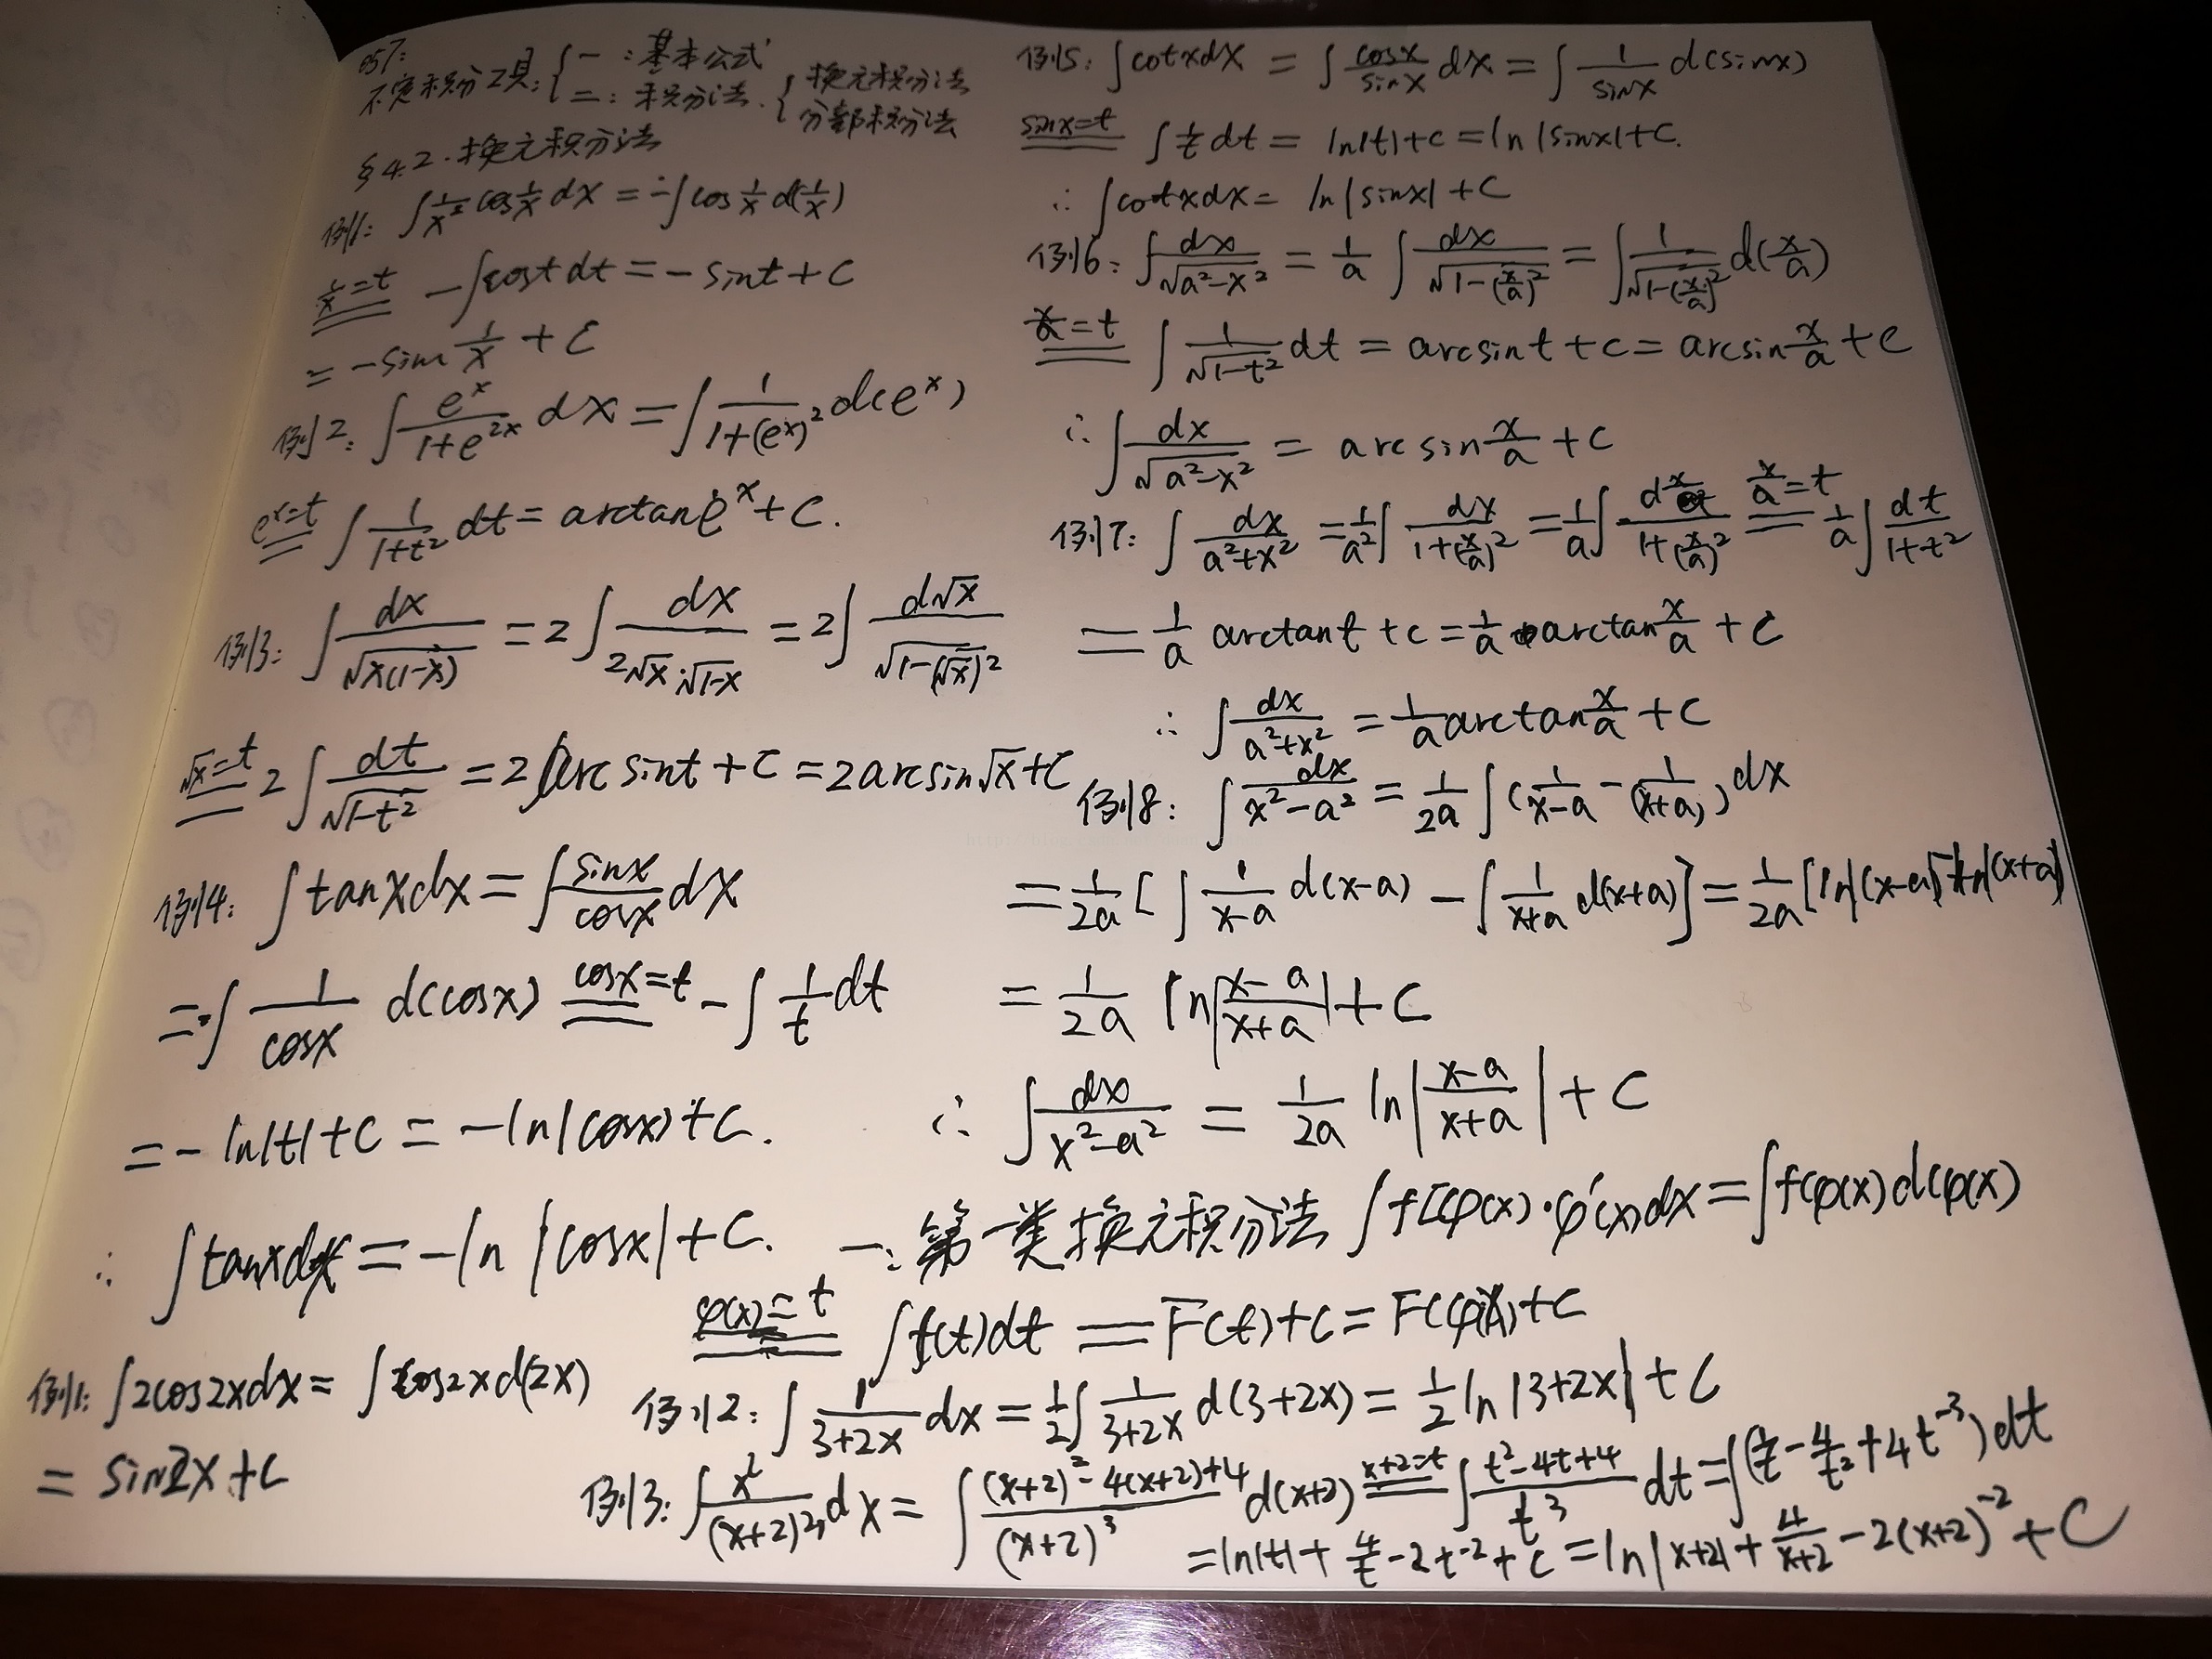 057:
不定积分工具: { 一:基本公式 二:积分法. { 换元积分法 分部积分法
§4.2.换元积分法
例1: ∫1/x² cos 1/x dx = -∫cos 1/x d(1/x)
1/x=t -∫cost dt = -sint+C
= -sin 1/x + C
例2: ∫ e^x/(1+e^(2x)) dx = ∫ 1/(1+(e^x)²) d(e^x)
e^x=t ∫ 1/(1+t²) dt = arctan e^x + C.
例3: ∫ dx/√(x(1-x)) = 2∫ dx/(2√x·√(1-x)) = 2∫ d√x/√(1-(√x)²)
√x=t 2∫ dt/√(1-t²) = 2arcsint+C = 2arcsin√x+C
例4: ∫tanxdx = ∫ sinx/cosx dx
= -∫ 1/cosx d(cosx) cosx=t -∫ 1/t dt
= -ln|t|+C = -ln|cosx|+C.
∴ ∫tanxdx = -ln|cosx|+C.
例5: ∫cotxdx = ∫ cosx/sinx dx = ∫ 1/sinx d(sinx)
sinx=t ∫ 1/t dt = ln|t|+C = ln|sinx|+C.
∴ ∫cotxdx = ln|sinx|+C
例6: ∫ dx/√(a²-x²) = 1/a ∫ dx/√(1-(x/a)²) = ∫ 1/√(1-(x/a)²) d(x/a)
x/a=t ∫ 1/√(1-t²) dt = arcsint+C = arcsin x/a + C
∴ ∫ dx/√(a²-x²) = arcsin x/a + C
例7: ∫ dx/(a²+x²) = 1/a² ∫ dx/(1+(x/a)²) = 1/a ∫ d x/a /(1+(x/a)²) x/a=t 1/a ∫ dt/(1+t²)
= 1/a arctant+C = 1/a arctan x/a + C
∴ ∫ dx/(a²+x²) = 1/a arctan x/a + C
例8: ∫ dx/(x²-a²) = 1/2a ∫(1/(x-a) - 1/(x+a))dx
= 1/2a [∫ 1/(x-a) d(x-a) - ∫ 1/(x+a) d(x+a)] = 1/2a [ln|(x-a)|-ln|(x+a)|
= 1/2a ln|(x-a)/(x+a)|+C
∴ ∫ dx/(x²-a²) = 1/2a ln|(x-a)/(x+a)|+C
一:第一类换元积分法 ∫f[φ(x)·φ'(x)dx = ∫f(φ(x)d(φ(x)
φ(x)=t ∫f(t)dt = F(t)+C = F(φ(x)+C
例1: ∫2cos2xdx = ∫cos2xd(2x)
= sin2x+C
例2: ∫ 1/(3+2x) dx = 1/2∫ 1/(3+2x) d(3+2x) = 1/2 ln|3+2x|+C
例3: ∫ x²/(x+2)³ dx = ∫ ((x+2)²-4(x+2)+4)/(x+2)³ d(x+2) x+2=t ∫ (t²-4t+4)/t³ dt = ∫(1/t - 4/t² + 4t⁻³)dt
= ln|t| + 4/t - 2t⁻² + C = ln|x+2| + 4/(x+2) - 2(x+2)⁻² + C